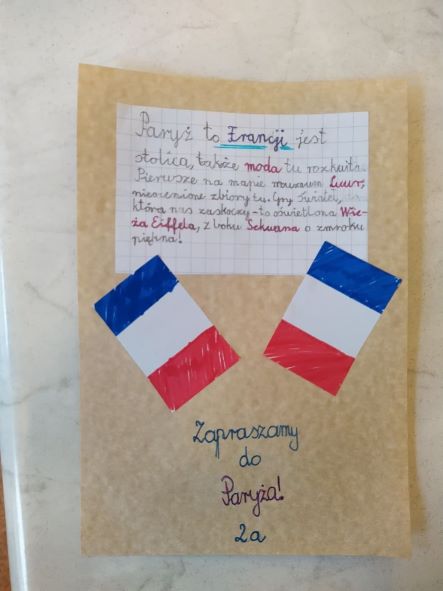 Paryż to Francji jest
stolica, także moda tu rozkwita.
Pierwsze na mapie muzeum Luwr,
nieocenione zbiory tu. Gry świateł,
która nas zaskoczy - to oświetlona Wie-
ża Eiffela, z boku Sekwana o zmroku
piękna!
Zapraszamy
do
Paryża!
2a